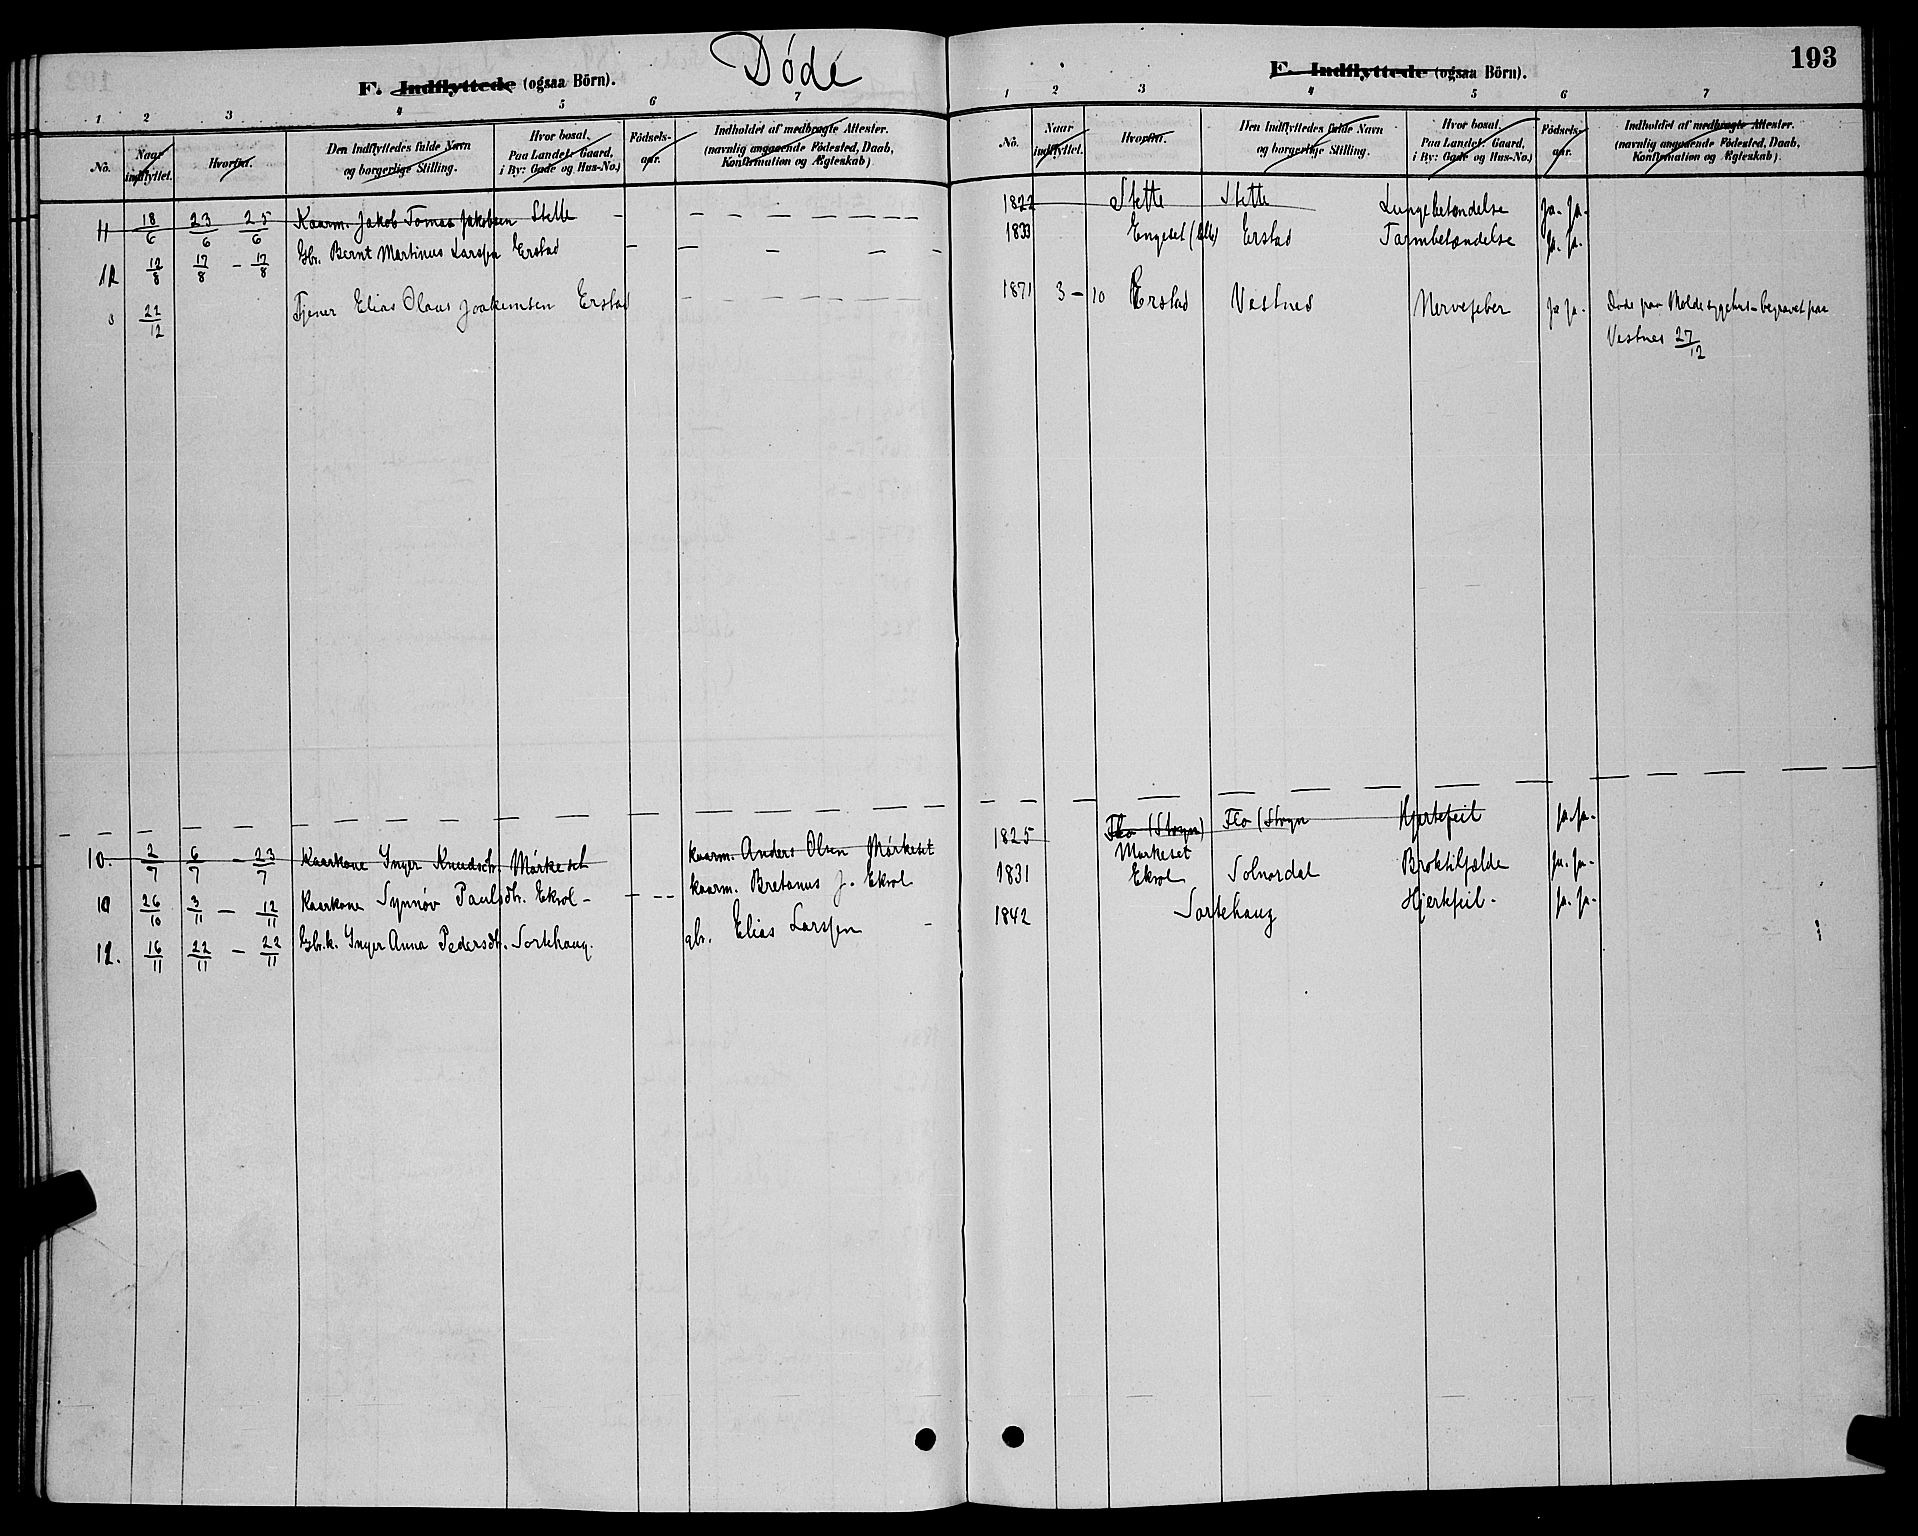 Døde
F. Indflyttede (ogsaa Börn).
1 2 3 4 5 6 7
No. Naar indflyttet. Hvorfra. Den Indflyttedes fulde Navn og borgerlige Stilling. Hvor bosat, Paa Landet: Gaard, i By: Gade og Hus-No.) Födsels-aar. Indholdet af medbragte Attester. (navnlig angaaende Födested, Daab, Konfirmation og Ægteskab).
11 18/6 23/6 25/6 Kaarm. Jakob Tomas Jakobsen Stette - - - - - - - -
12 12/8 17/8 - 17/8 Gbr. Bernt Martinus Larssen Erstad - - - - -
22/12 Tjener Elias Olaus Joakimsen Erstad - - - - - - -
10. 2/7 6/7 - 23/7 Kaarkone Inger Knudsdtr. Mørkeset kaarm. Anders Olsen Mørkeset
11 26/10 3/11 - 12/11 Kaarkone Synnøv Paulsdtr. Ekrol - - - - kaarm. Bretanus J. Ekrol
12. 16/11 22/11 - 22/11 Gbr.k. Inger Anna Pedersdtr. Sortehaug. gbr. Elias Larssen -
193
F. Indflyttede (ogsaa Börn).
1 2 3 4 5 6 7
No. Naar indflyttet. Hvorfra. Den Indflyttedes fulde Navn og borgerlige Stilling. Hvor bosat, Paa Landet: Gaard, i By: Gade og Hus-No.) Födsels-aar. Indholdet af medbragte Attester. (navnlig angaaende Födested, Daab, Konfirmation og Ægteskab).
1822 Stette Stette Lungebetændelse Ja. Ja.
1833 Engeset (lille) Erstad Tarmbetændelse Ja. Ja.
1871 3 - 10 Erstad Vestnes Nervefeber Ja Ja. Døde paa Molde sygehus - begravet paa
Vestnes 27/12
1825 Flo (Stryn) Flo (Stryn Hjertefeil Ja. Ja.
Mørkeset
1831 Ekrol Solnørdal Broktilfælde Ja. Ja.
1842 Sortehaug Hjertfeil. Ja. Ja.